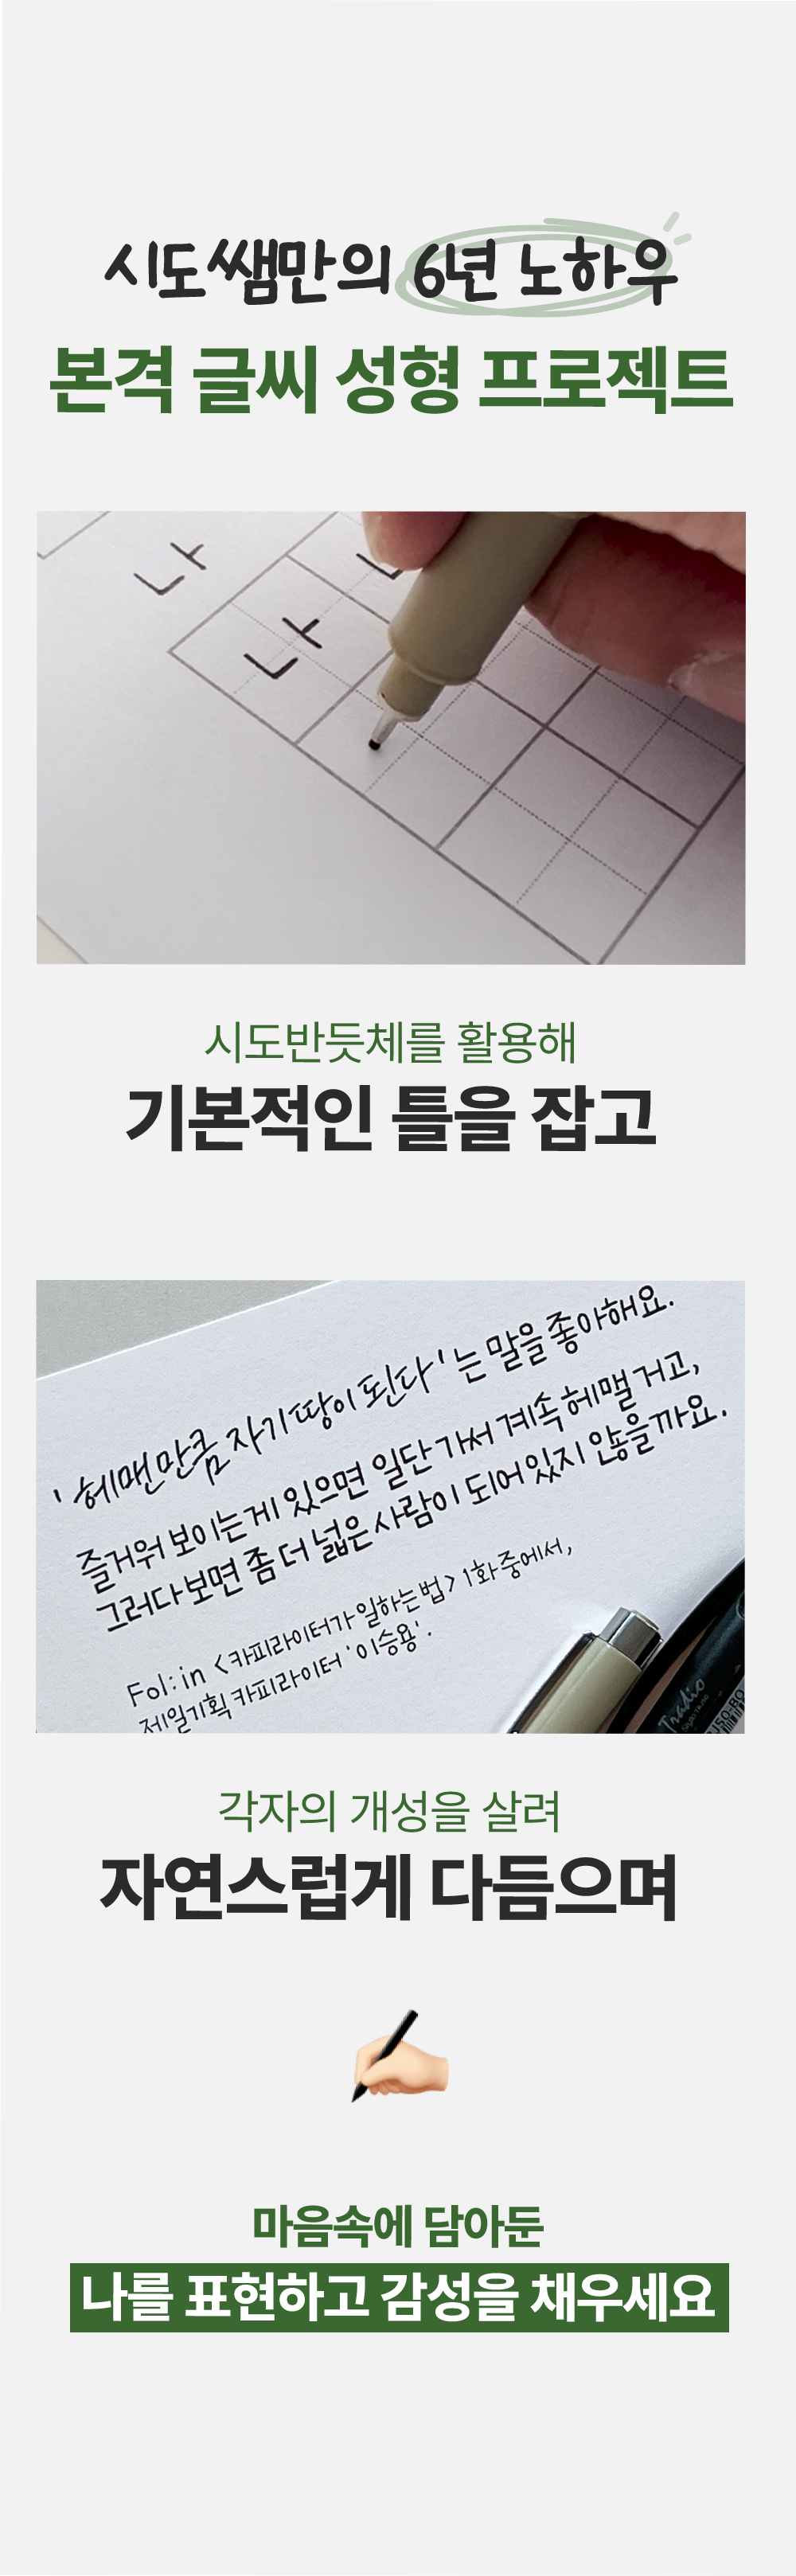 시도쌤만의 6년 노하우
본격 글씨 성형 프로젝트
나
나
시도반듯체를 활용해
기본적인 틀을 잡고
'헤맨만큼 자기 땅이 된다'는 말을 좋아해요.
즐거워 보이는게 있으면 일단 가서 계속 헤맬 거고,
그러다보면 좀 더 넓은 사람이 되어 있지 않을까요.
Fol:in <카피라이터가 일하는 법> 1화 중에서,
제일기획 카피라이터 '이승용'.
Tradio
각자의 개성을 살려
자연스럽게 다듬으며
마음속에 담아둔
나를 표현하고 감성을 채우세요